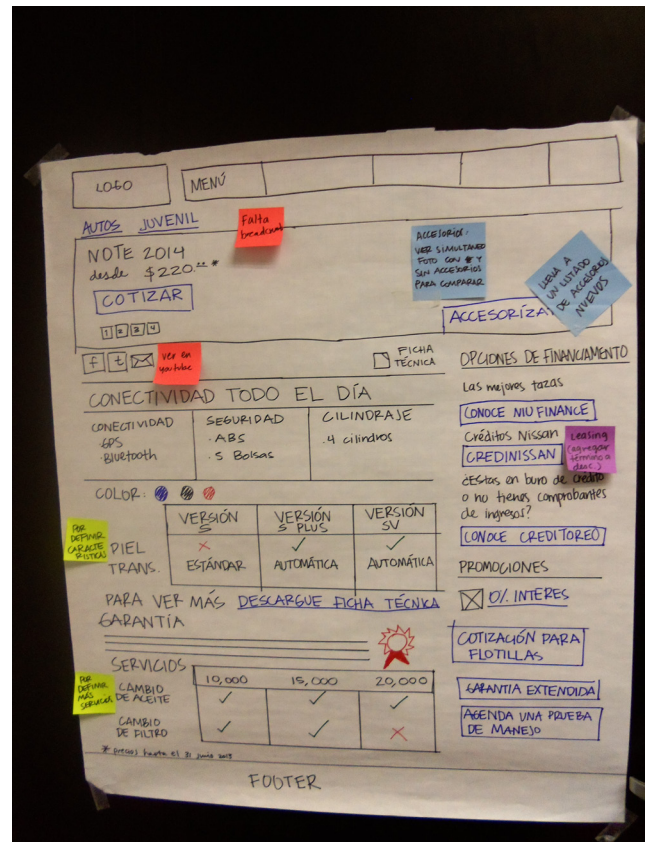 LOGO
MENÚ
AUTOS JUVENIL
Falta
breadcrumb
NOTE 2014
desde $220.00 *
COTIZAR
1 2 3 4
ACCESORIOS:
VER SIMULTANEO
FOTO CON * Y
SIN ACCESORIOS
PARA COMPARAR
LLEVA A
UN LISTADO
DE ACCESORIOS
NUEVOS
ACCESORÍZA
f t
ver en
youtube
FICHA
TÉCNICA
CONECTIVIDAD TODO EL DÍA
CONECTIVIDAD
·GPS
·Bluetooth
SEGURIDAD
·ABS
·5 Bolsas
CILINDRAJE
·4 cilindros
COLOR:
VERSIÓN
S
VERSIÓN
S PLUS
VERSIÓN
SV
POR
DEFINIR
CARACTE
RISTICAS
PIEL
TRANS.
ESTÁNDAR
AUTOMÁTICA
AUTOMÁTICA
PARA VER MÁS DESCARGUE FICHA TÉCNICA
GARANTÍA
SERVICIOS
10,000 15,000 20,000
POR
DEFINIR
MÁS
SERVICIOS
CAMBIO
DE ACEITE
CAMBIO
DE FILTRO
* precio hasta el 31 junio 2013
OPCIONES DE FINANCIAMENTO
Las mejores tazas
CONOCE NIU FINANCE
Créditos Nissan
CREDINISSAN
Leasing
(agregar
término a
desc.)
¿Estas en buro de crédito
o no tienes comprobantes
de ingresos?
CONOCE CREDITOREO
PROMOCIONES
0% INTERES
COTIZACIÓN PARA
FLOTILLAS
GARANTIA EXTENDIDA
AGENDA UNA PRUEBA
DE MANEJO
FOOTER